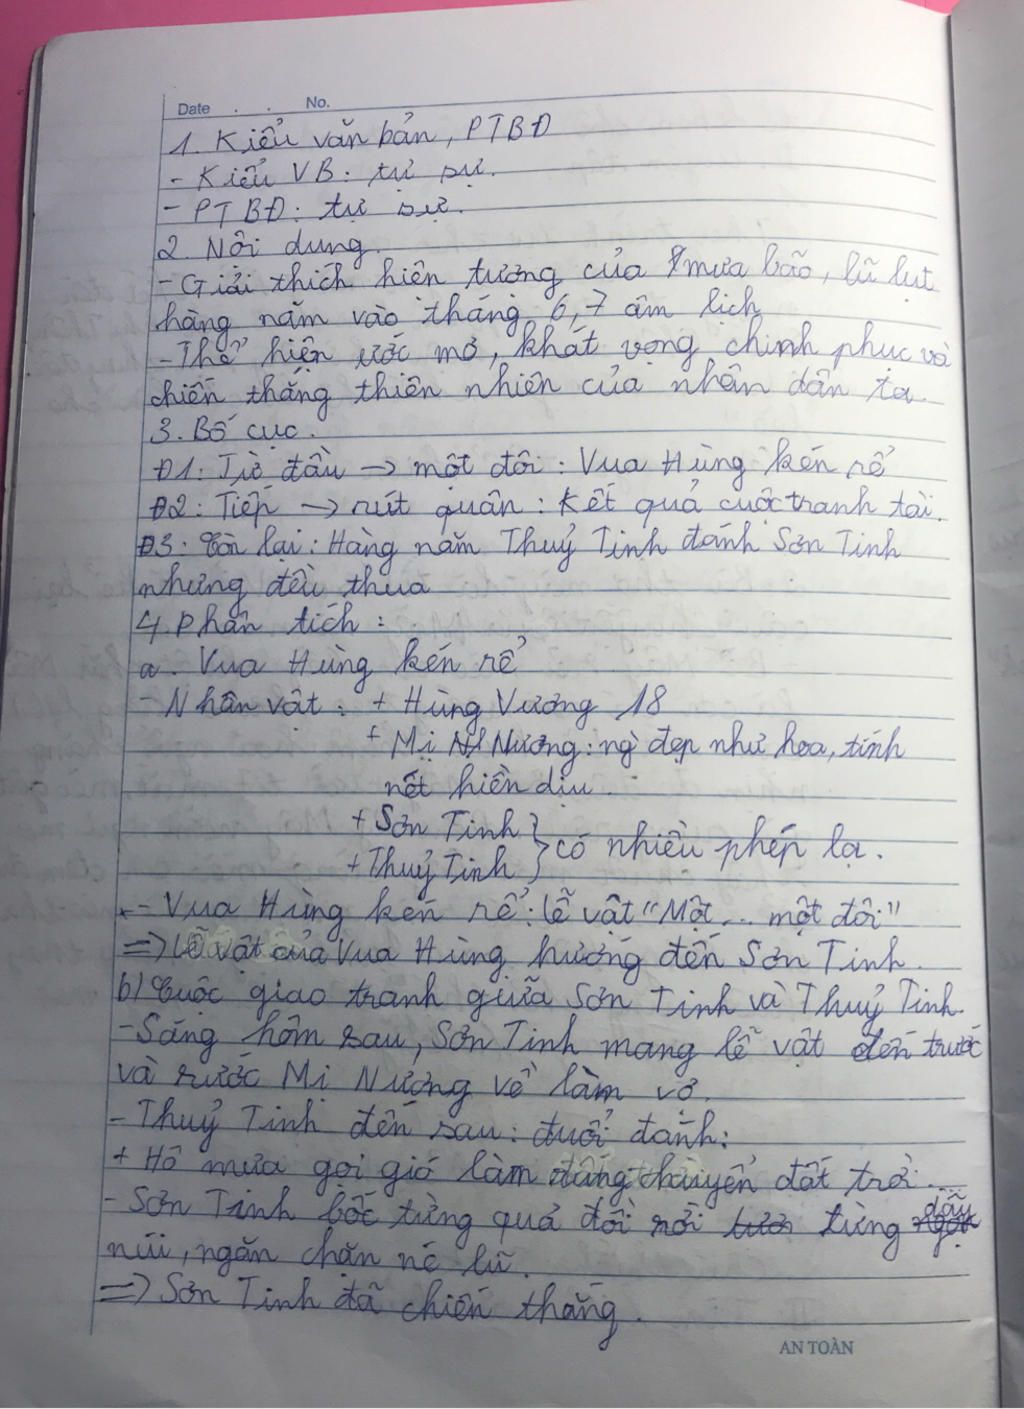 Date . . No.
1. Kiểu văn bản, PTBĐ
- Kiểu VB: tự sự.
- PTBĐ: tự sự.
2. Nội dung.
- Giải thích hiện tượng của mưa bão, lũ lụt
hàng năm vào tháng 6,7 âm lịch
- Thể hiện ước mơ, khát vọng chinh phục và
chiến thắng thiên nhiên của nhân dân ta.
3. Bố cục.
Đ1: Từ đầu → một đôi: Vua Hùng kén rể
Đ2: Tiếp → rút quân: Kết quả cuộc tranh tài.
Đ3: Còn lại: Hàng năm Thuỷ Tinh đánh Sơn Tinh
nhưng đều thua
4. Phân tích:
a. Vua Hùng kén rể
- Nhân vật: + Hùng Vương 18
+ Mị Nương: ng` đẹp như hoa, tính
nết hiền dịu.
+ Sơn Tinh
+ Thuỷ Tinh } có nhiều phép lạ.
- Vua Hùng kén rể: lễ vật "Một... một đôi"
=> Lễ vật của Vua Hùng hướng đến Sơn Tinh.
b) Cuộc giao tranh giữa Sơn Tinh và Thuỷ Tinh.
- Sáng hôm sau, Sơn Tinh mang lễ vật đến trước
và rước Mị Nương về làm vợ.
- Thuỷ Tinh đến sau: đuổi đánh:
+ Hô mưa gọi gió làm dông chuyển đất trời...
- Sơn Tinh bốc từng quả đồi rời từng dãy
núi, ngăn chặn nc lũ.
=> Sơn Tinh đã chiến thắng.
AN TOÀN